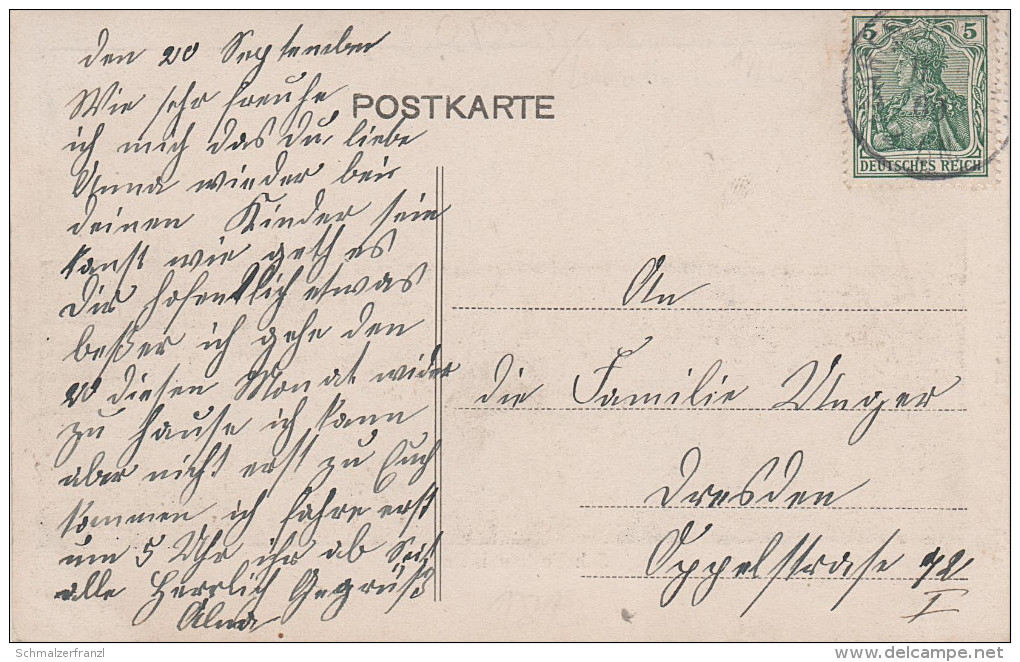 den 20 September
Wie sehr freuhe
ich mich das du, liebe
Anna wieder bei
deinen Kinder sein
kanst wie geth es
Dir hofentlich etwas
beßer ich gehe den
20 diesen Monat wider
zu hause ich kann
aber nicht erst zu Euch
kommen ich fahre erst
um 5 Uhr hir ab Seit
alle Herrlich Gegrüßt
Alma
POSTKARTE
5 5
DEUTSCHES REICH
An
die Familie Unger
Dresden
Oppelstrase 42
I
© Schmalzerfranzl